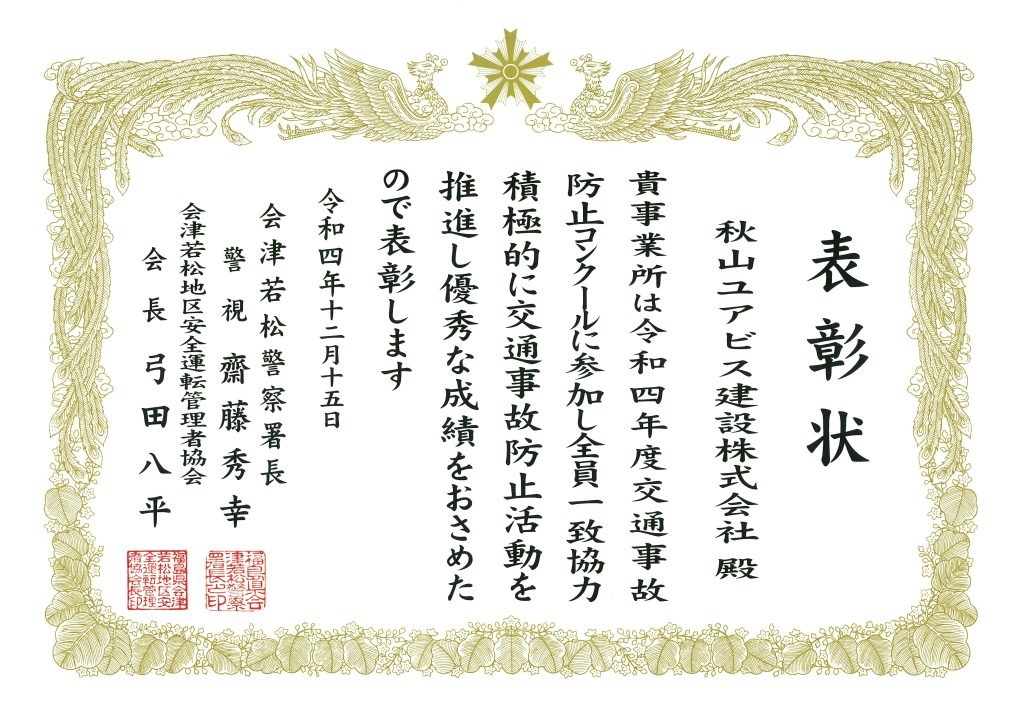 表彰状
秋山ユアビス建設株式会社 殿
貴事業所は令和四年度交通事故
防止コンクールに参加し全員一致協力
積極的に交通事故防止活動を
推進し優秀な成績をおさめた
ので表彰します
令和四年十二月十五日
会津若松警察署長
警視 齋藤秀幸
会津若松地区安全運転管理者協会
会長 弓田八平
福島県会
津若松警察
署長之印
福島県会津
若松地区安
全運転管理
者協会長印